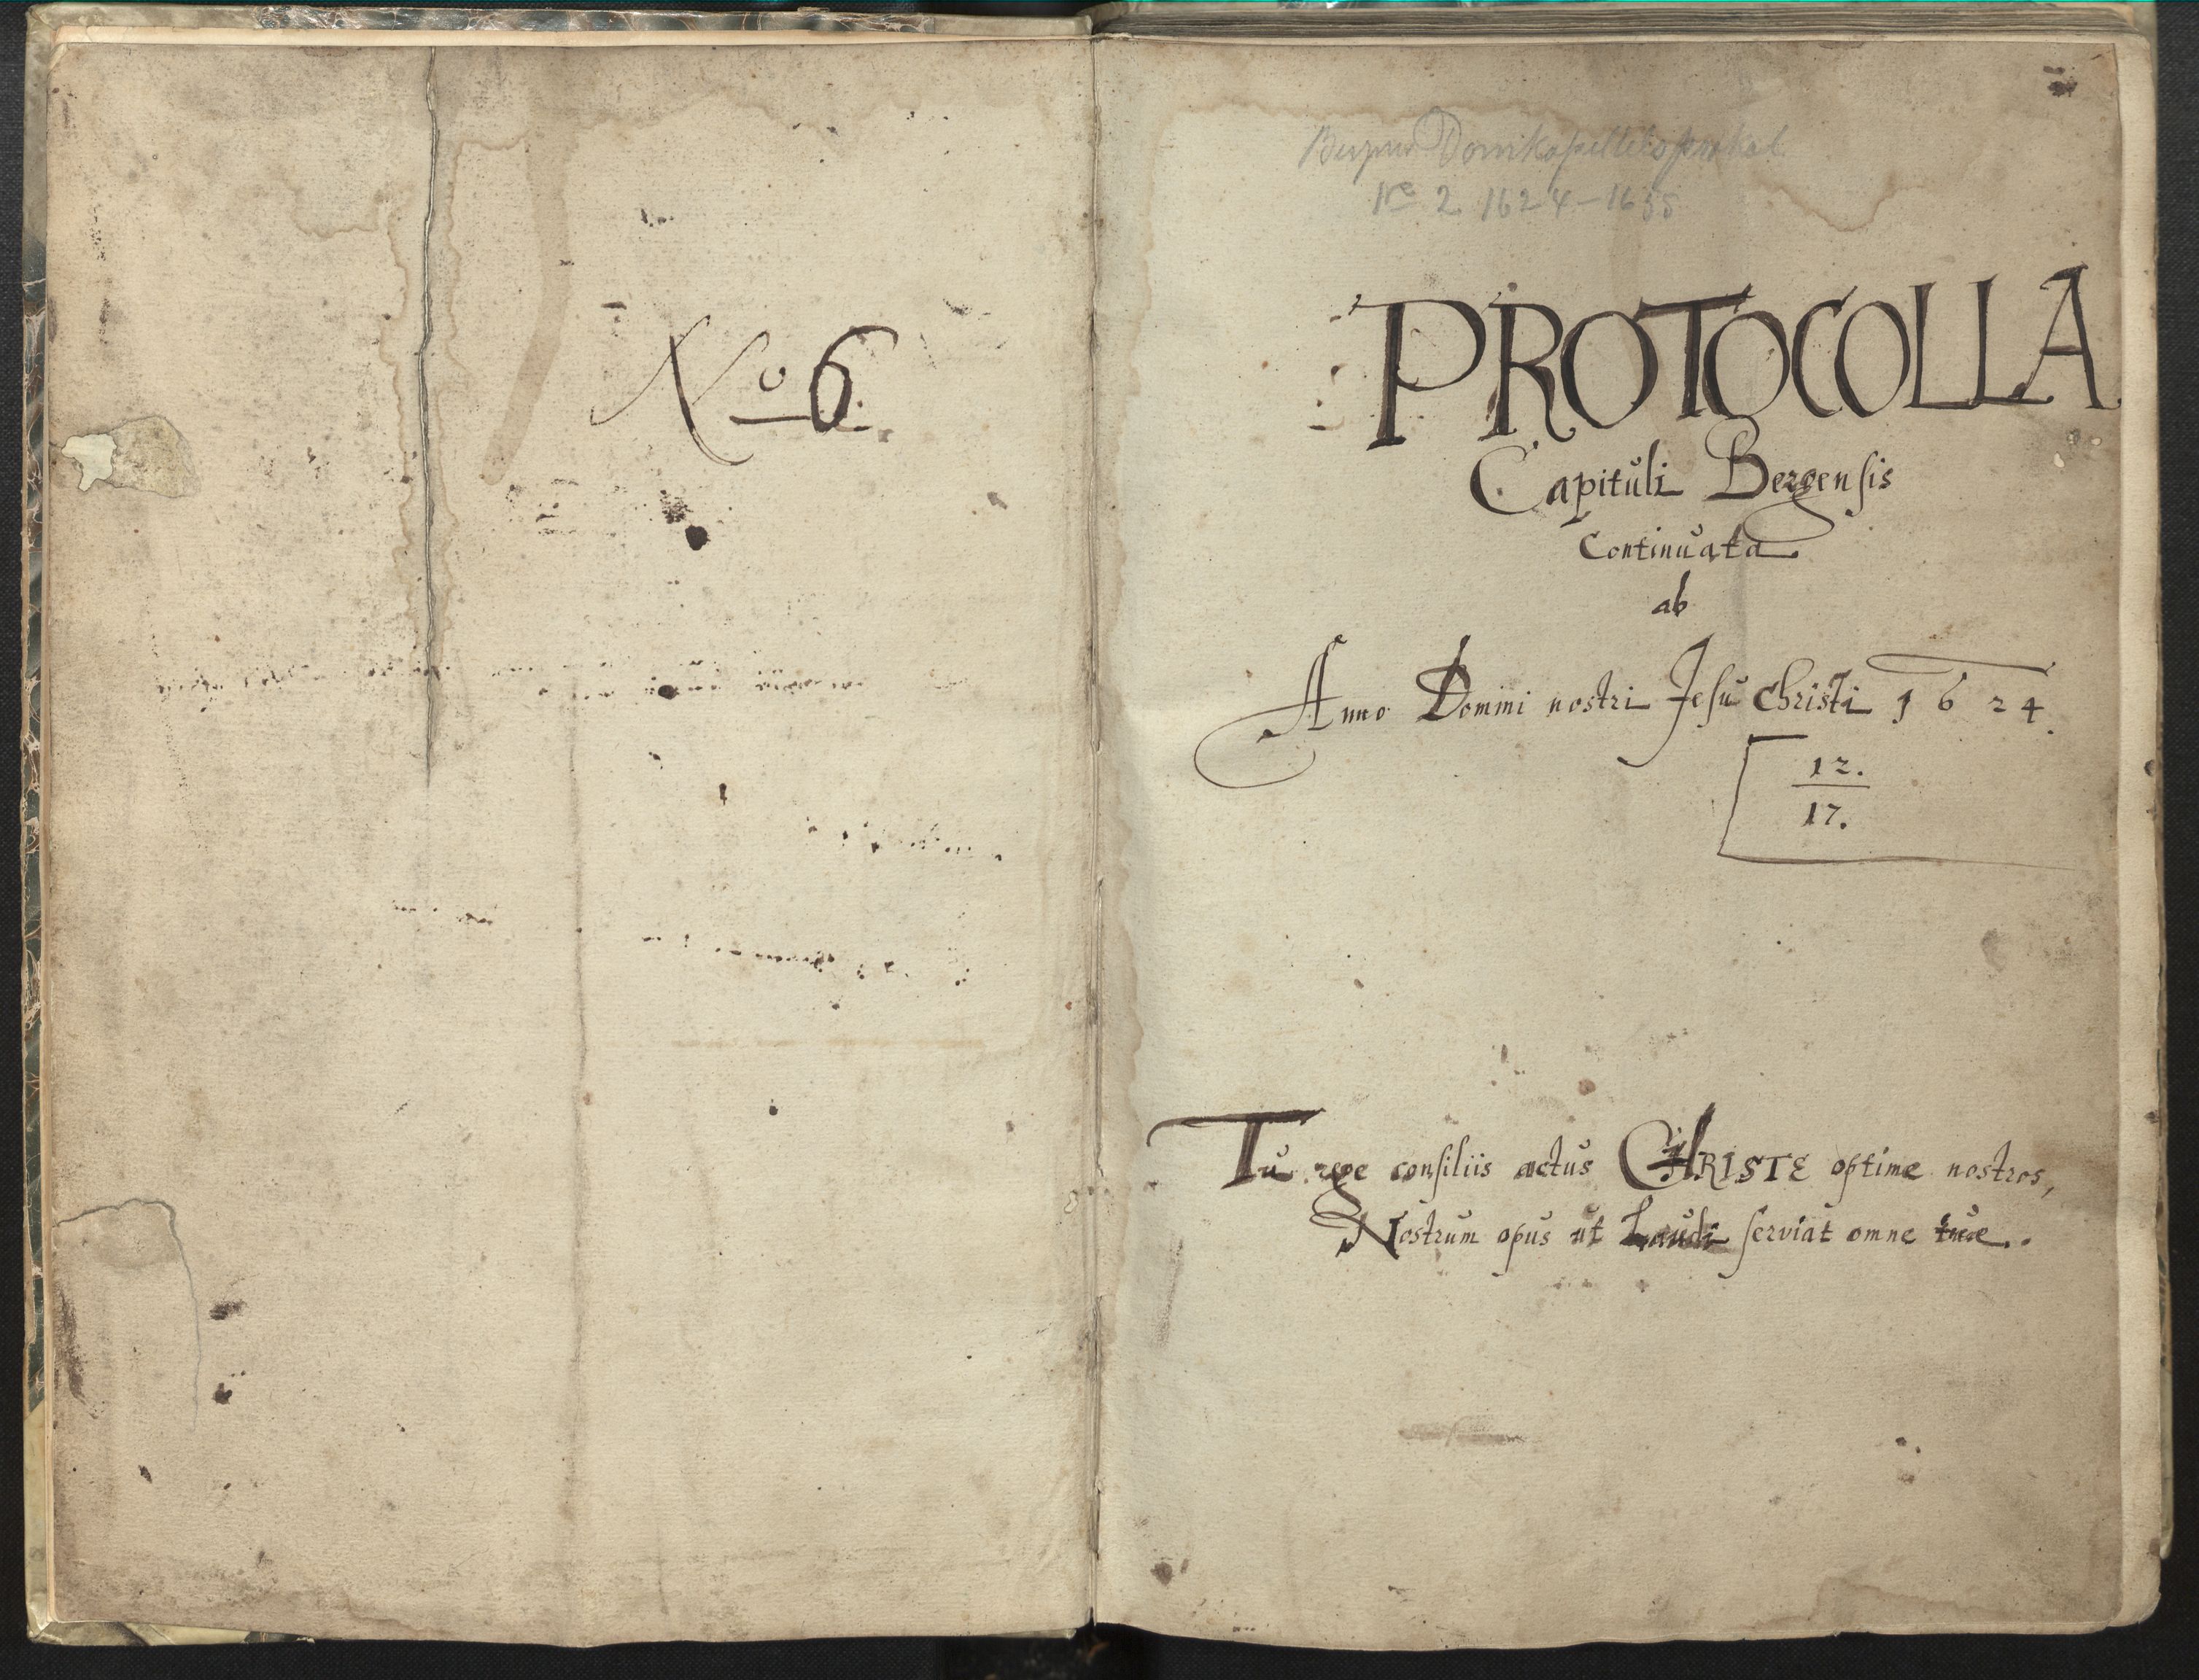 No 6
Bergens Domkapitels protokol
No 2 1624-1635
PROTOCOLLA
Capituli Bergensis
Continuata
ab
Anno Domini nostri Jesu Christi 1624.
12.
17.
Tu rege consiliis actus CHRISTE optime nostros,
Nostrum opus ut Laudi serviat omne tuæ.